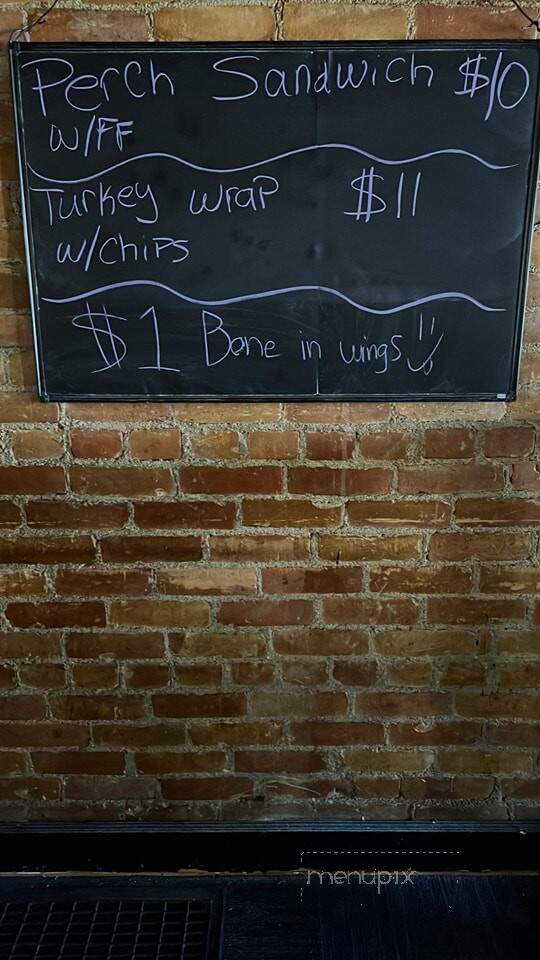 Perch Sandwich $10
w/FF
Turkey wrap $11
w/chips
$1 Bone in wings
menupix